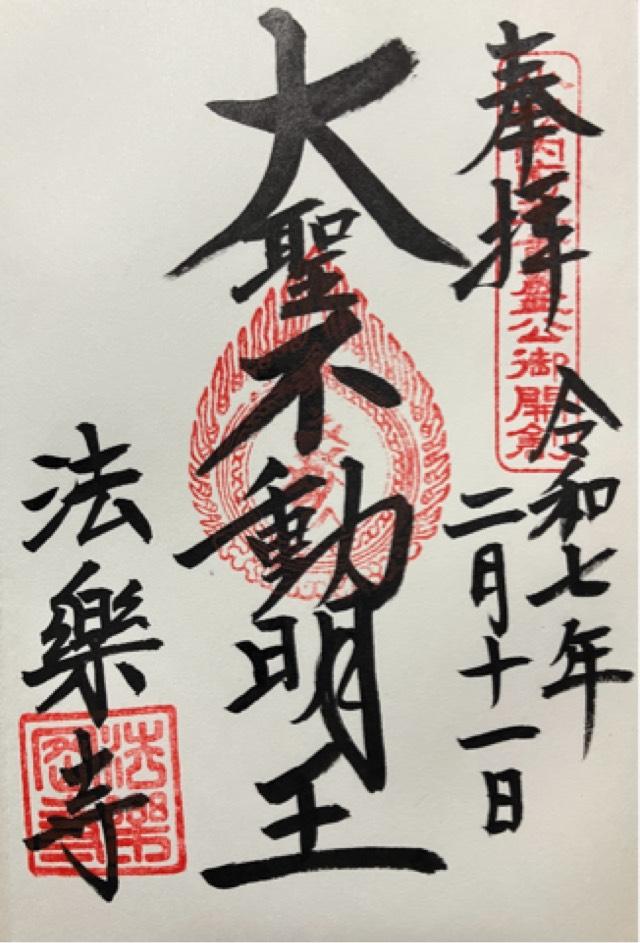 奉拝
令和七年
二月十一日
大聖不動明王
法樂寺
法樂
寺
盛公御開創